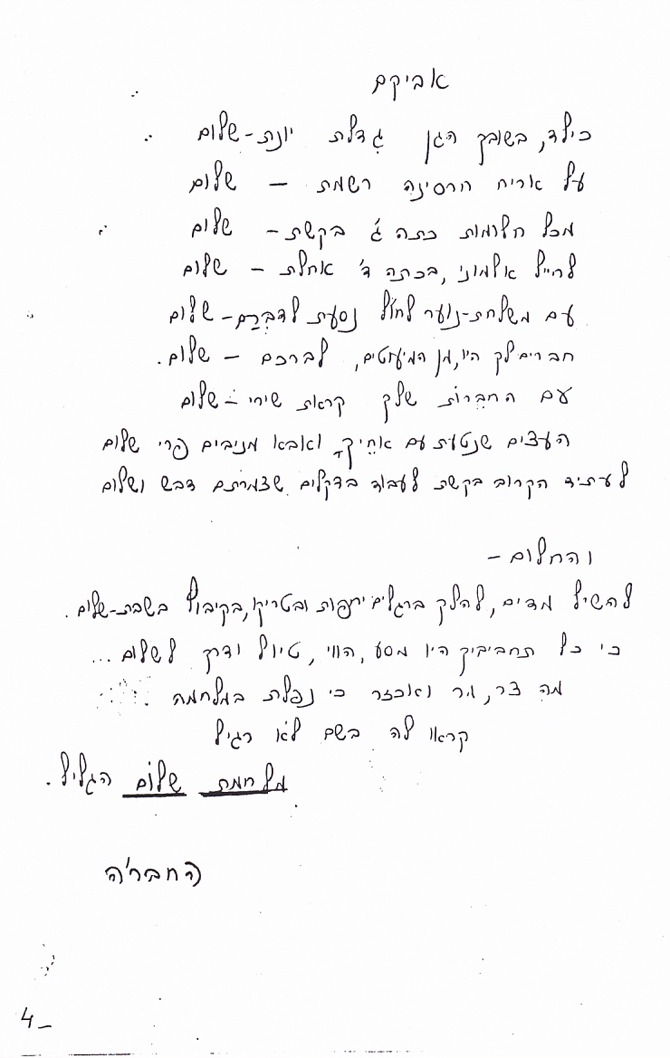 אביקם
כילד, בשובך הגן גדלת יונת-שלום
על אריח חרסינה רשמת - שלום
מכל חלומות כתה ג' בקשת - שלום
לחייל אלמוני, בכתה ד' אחלת - שלום
עם משלחת-נוער לחו"ל נסעת לדברם - שלום
חברים לך היו, מן המיעוטים, לברכם - שלום.
עם החברות שלך קראת שירי - שלום
העצים שנטעת עם אחיך ואבא מניבים פרי שלום
לעתיד הקרוב בקשת לעבוד בדקלים שצמרתם דבש ושלום
והחלום -
להשיל מדים, להלך ברגלים יחפות ובטריקו, בקיבוץ בשבת-שלום.
כי כל תחביביך היו מסע, הווי, טיול ודרך לשלום...
מה צר, ומר ואכזר כי נפלת במלחמה
קראו לה בשם לא רגיל
מלחמת שלום הגליל.
החבר'ה
4-